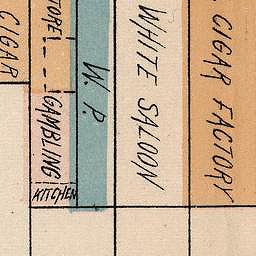 CIGAR
TORE
GAMBLING
KITCHEN
W. P.
WHITE SALOON
CIGAR FACTORY